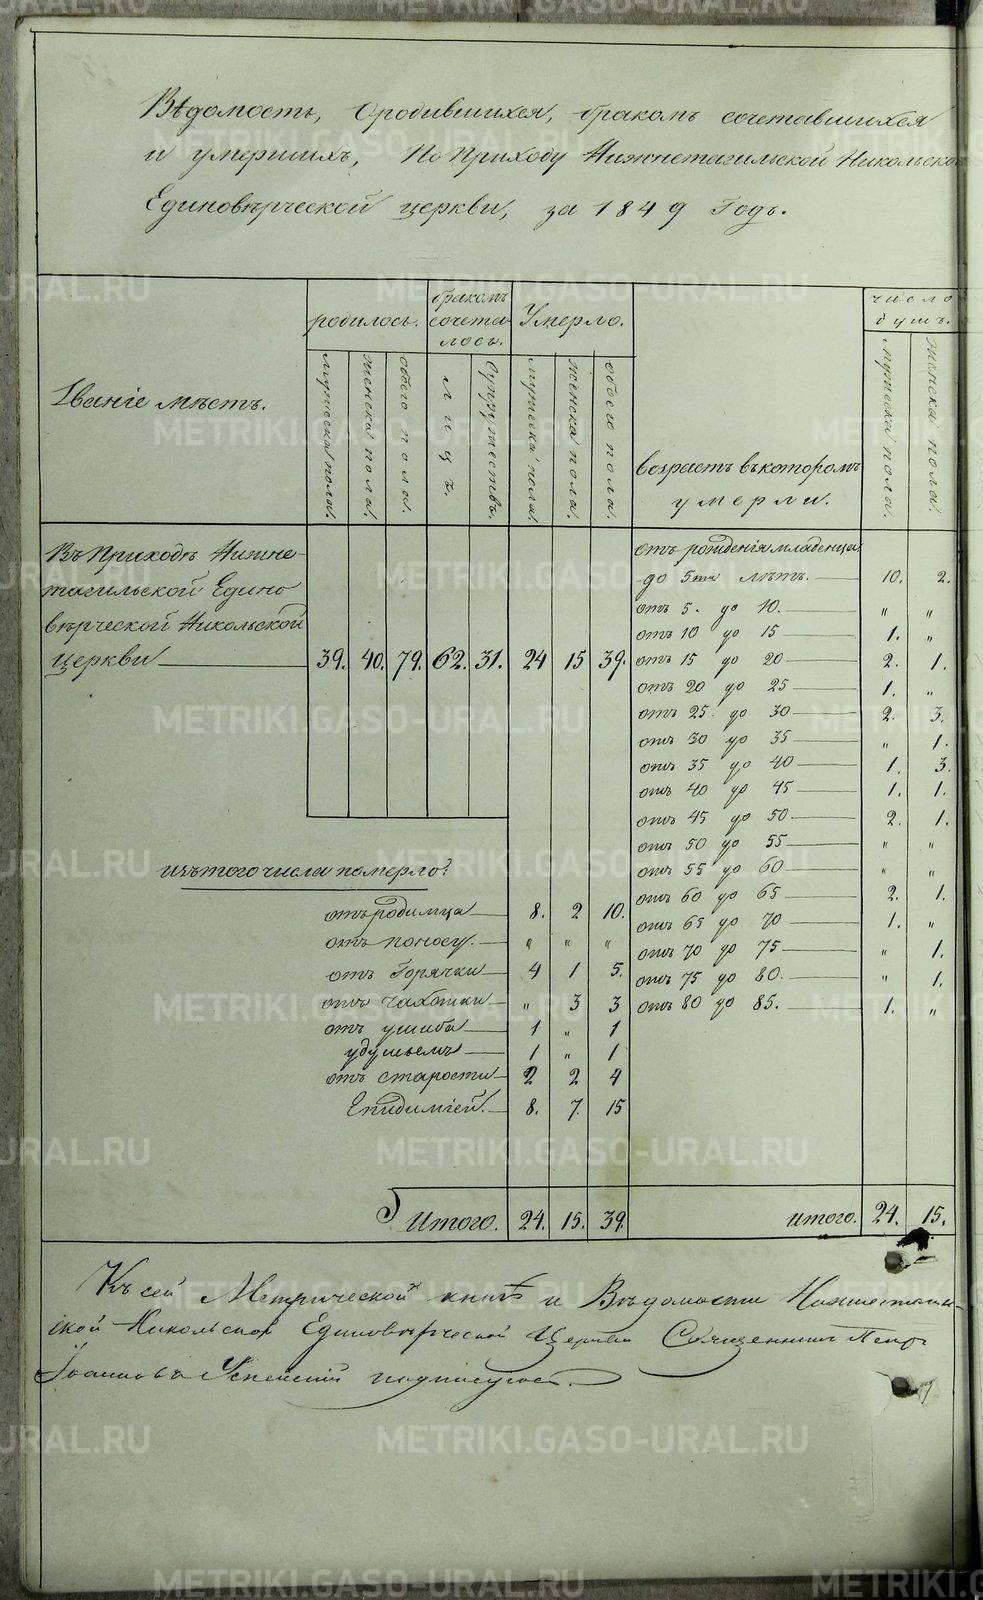 Вѣдомость, ородившихся, бракомъ сочетавшихся
и умершихъ, По Приходу Нижнетагильской Никольской
Единовѣрческой церкви, за 1849 Годъ.
Званіе мѣстъ.
родилось.
мужеска пола.
женска пола.
обоего пола.
бракомъ сочета-
лось.
лицъ.
Супружествъ.
Умерло.
мужеска пола.
женска пола.
обоего пола.
возрастъ въкоторомъ
умерли.
число
душъ.
мужеска пола.
женска пола.
Въ Приходѣ Нижне-
тагильской Едино
вѣрческой Никольской
церкви 39. 40. 79. 62. 31. 24 15 39.
отъ рожденія младенца
до 5ти лѣтъ. 10. 2.
отъ 5. до 10. " "
отъ 10 до 15 1. "
отъ 15 до 20 2. 1.
отъ 20 до 25 1. "
отъ 25 до 30 2. 3.
отъ 30 до 35 " 1.
отъ 35 до 40 1. 3.
отъ 40 до 45 1. 1.
отъ 45 до 50 2. 1.
отъ 50 до 55 " "
отъ 55 до 60 " "
отъ 60 до 65 2. 1.
отъ 65 до 70 1. "
отъ 70 до 75 " 1.
отъ 75 до 80. " 1.
отъ 80 до 85. 1. "
изътого числа померло:
отъ родимца 8. 2 10.
отъ поносу. " " "
отъ Горячки 4 1 5.
отъ чахотки " 3 3
отъ ушиба 1 " 1
удушьемъ 1 " 1
отъ старости 2 2 4
Епидиміей. 8. 7. 15
Итого. 24. 15. 39.
итого. 24. 15.
Къ сей Метрической книгѣ и Вѣдомости Нижнетагиль-
ской Никольской Единовѣрческой Церкви Священникъ Петръ
Іоанновъ Успенскій подписуюсь.
METRIKI.GASO-URAL.RU